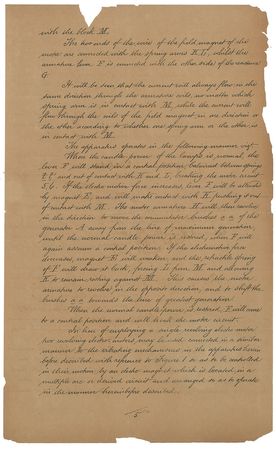 with the block M.
The two ends of the coils of the field magnet of the
motor are connected with the spring arms K, L, whilst the
armature lever F is connected with the other side of the
G.
It will be seen that the current will always flow in the
same direction through the armature coils, no matter which
spring arm is in contact with M, while the current will
flow through the coils of the field magnet in one direction or
the other according to whether one spring arm or the other, is
in contact with M.
The apparatus operates in the following manner, viz:
When the candle power of the lamps is normal, the
lever F will stand in a central position, balanced between springs
and out of contact with K and L, breaking the motor circuit
5, 6. If the electro motive force increases, lever F will be attracted
by magnet E, and will make contact with K, pushing it out
of contact with M. The motor armature N, will then revolve
in the direction to move the commutator brushes a a of the
generator A away from the line of maximum generation
until the normal candle power is restored, when F will
again assume a central position. If the electromotive force
decreases, magnet E will weaken and the retractile spring
of F will draw it back, forcing L from M and allowing
K to remain resting against M. This causes the motor
armature to revolve in the opposite direction, and to shift the
brushes a a towards the line of greatest generation.
When the normal candle power is restored, F will come
to a central position and will break the motor circuit.
In lieu of employing a single revolving electro motor
two revolving electro motors, may be used connected in a similar
manner to the actuating mechanisms in the apparatus herein
before described with reference to Figure 1 or as to be controlled
in their motion by an electro magnet which is located in a
multiple arc or derived circuit and arranged to operate
in the manner hereinbefore described.
5